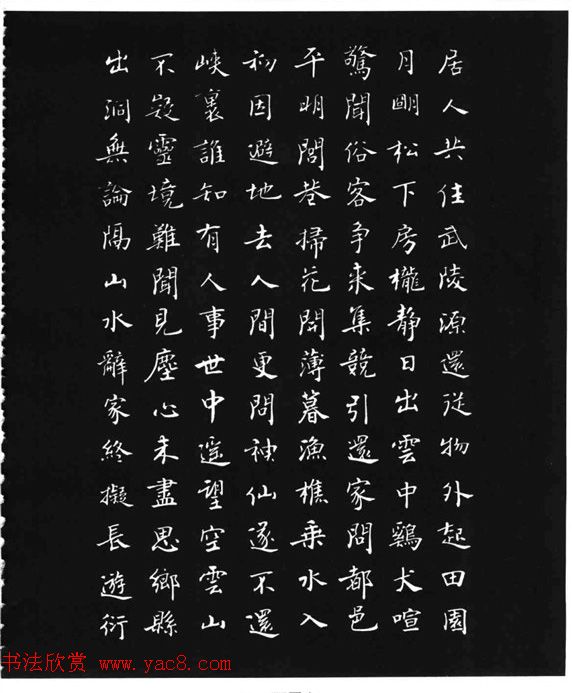 居人共住武陵源還從物外起田園
月朙松下房櫳静日出雲中鷄犬喧
驚聞俗客争来集競引還家問都邑
平明閭巷掃花開薄暮漁樵乗水入
初因避地去人間更問神仙遂不還
峡裏誰知有人事世中遥望空雲山
不疑靈境難聞見塵心未盡思郷縣
出洞無論隔山水辭家終擬長遊衍
书法欣赏 www.yac8.com